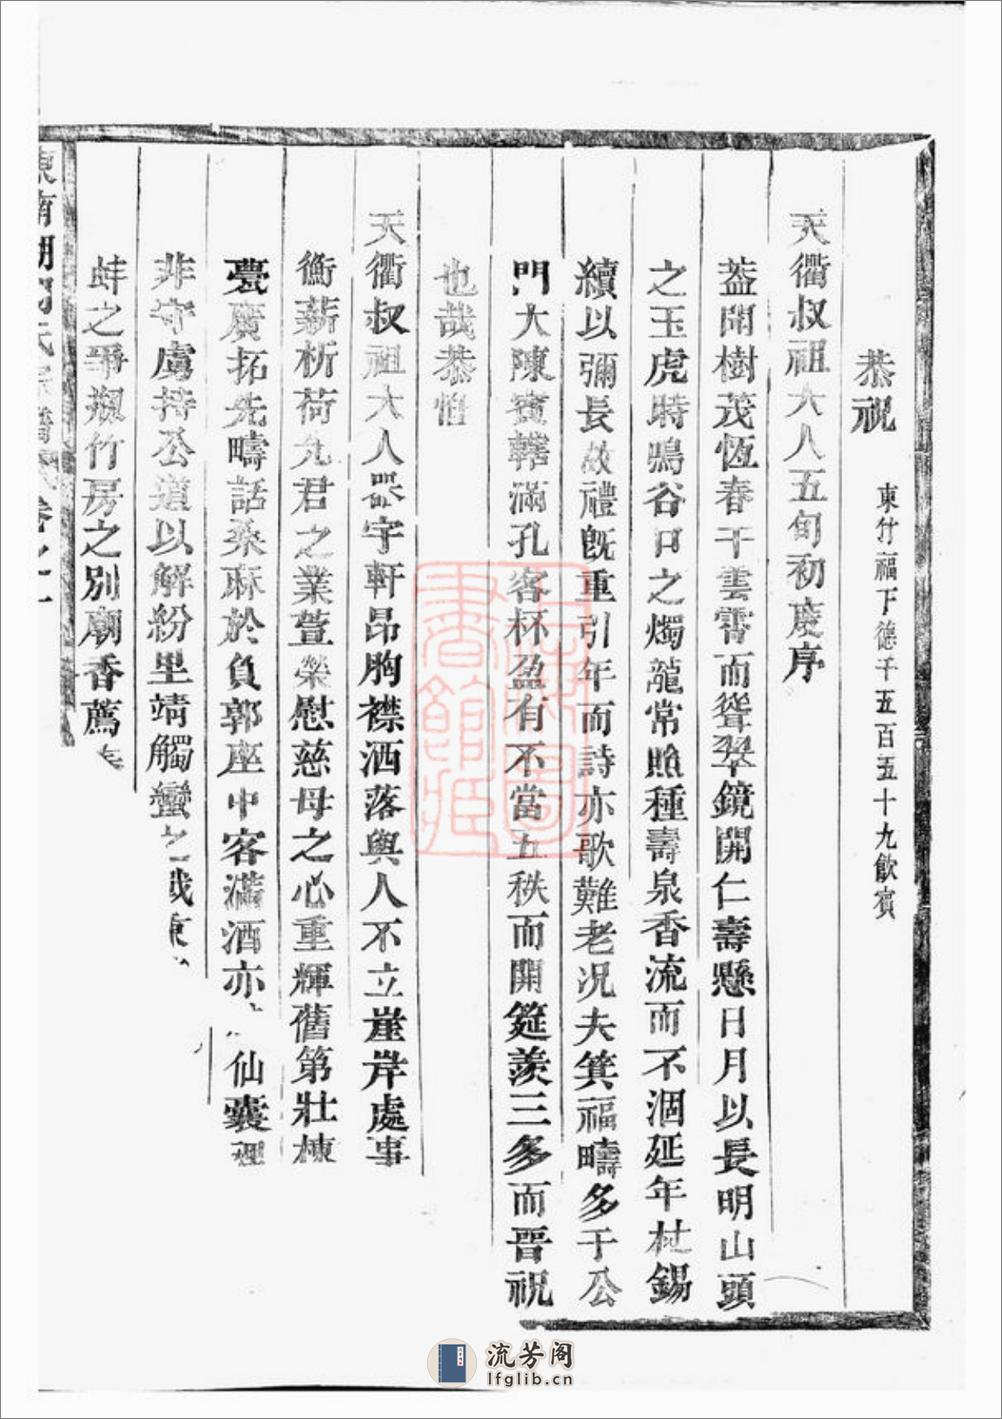 恭祝
東竹福下德千五百五十九飲賓
天衢叔祖大人五旬初度序
葢開樹茂恆春干雲霄而聳翠鏡開仁壽懸日月以長明山頭
之玉虎時鳴谷口之燭龍常照種壽泉香流而不涸延年杖錫
續以彌長故禮旣重引年而詩亦歌難老况夫箕福疇多于公
門大陳賓轄滿孔客杯盈有不當五秩而開筵羨三多而晋祝
也哉恭惟
天衢叔祖大人器宇軒昂胸襟洒落與人不立崖岸處事
衡薪析荷先君之業萱榮慰慈母之心重輝舊第壯棟
甍廣拓先疇話桑麻於負郭座中客滿酒亦
仙囊
非守虜持公道以解紛里靖觸蠻之戰東
蚌之爭瓶竹房之別廟香薦
東南湖 氏宗譜 卷之一
古籍圖書館藏
流芳阁
lfglib.cn